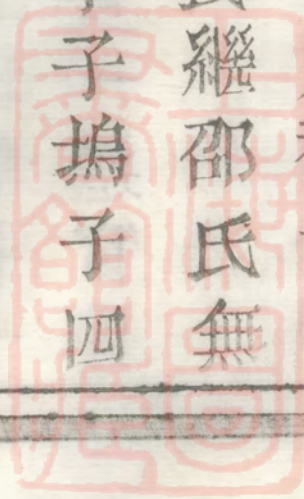 繼邵氏無
子塢子四